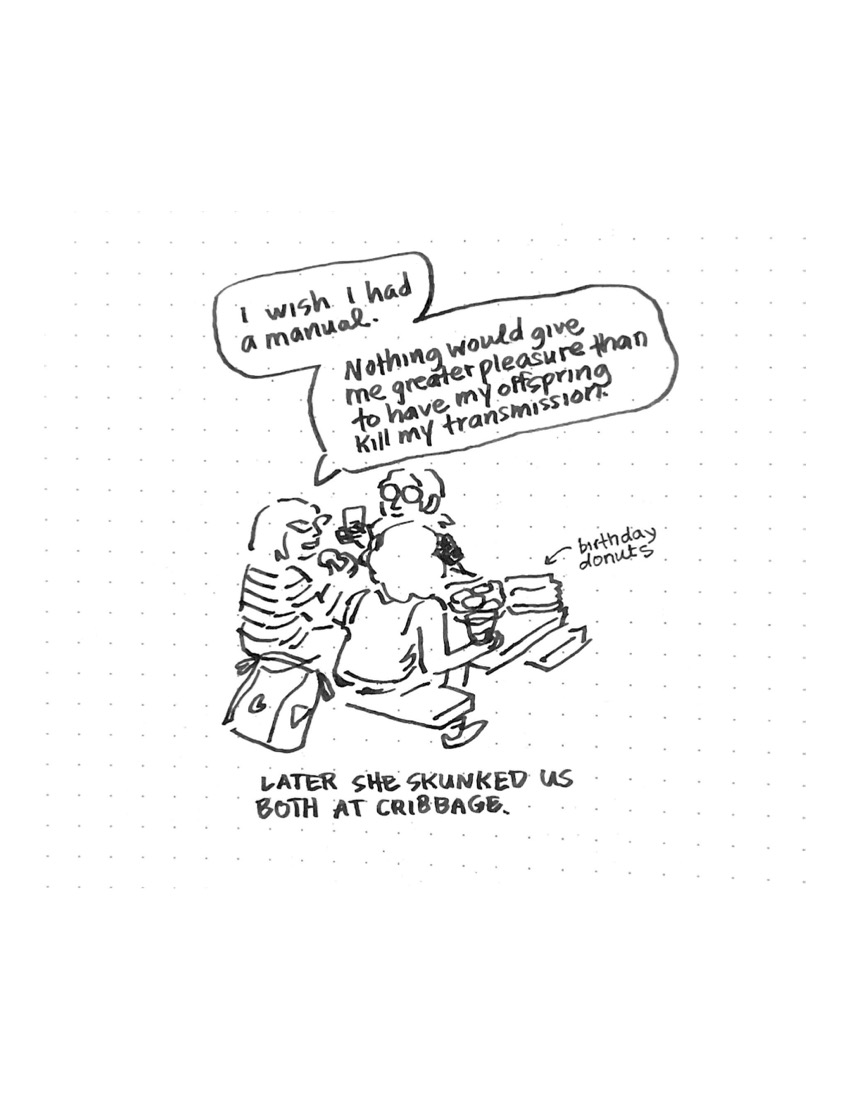 I wish I had
a manual.
Nothing would give
me greater pleasure than
to have my offspring
kill my transmission.
birthday
donuts
LATER SHE SKUNKED US
BOTH AT CRIBBAGE.